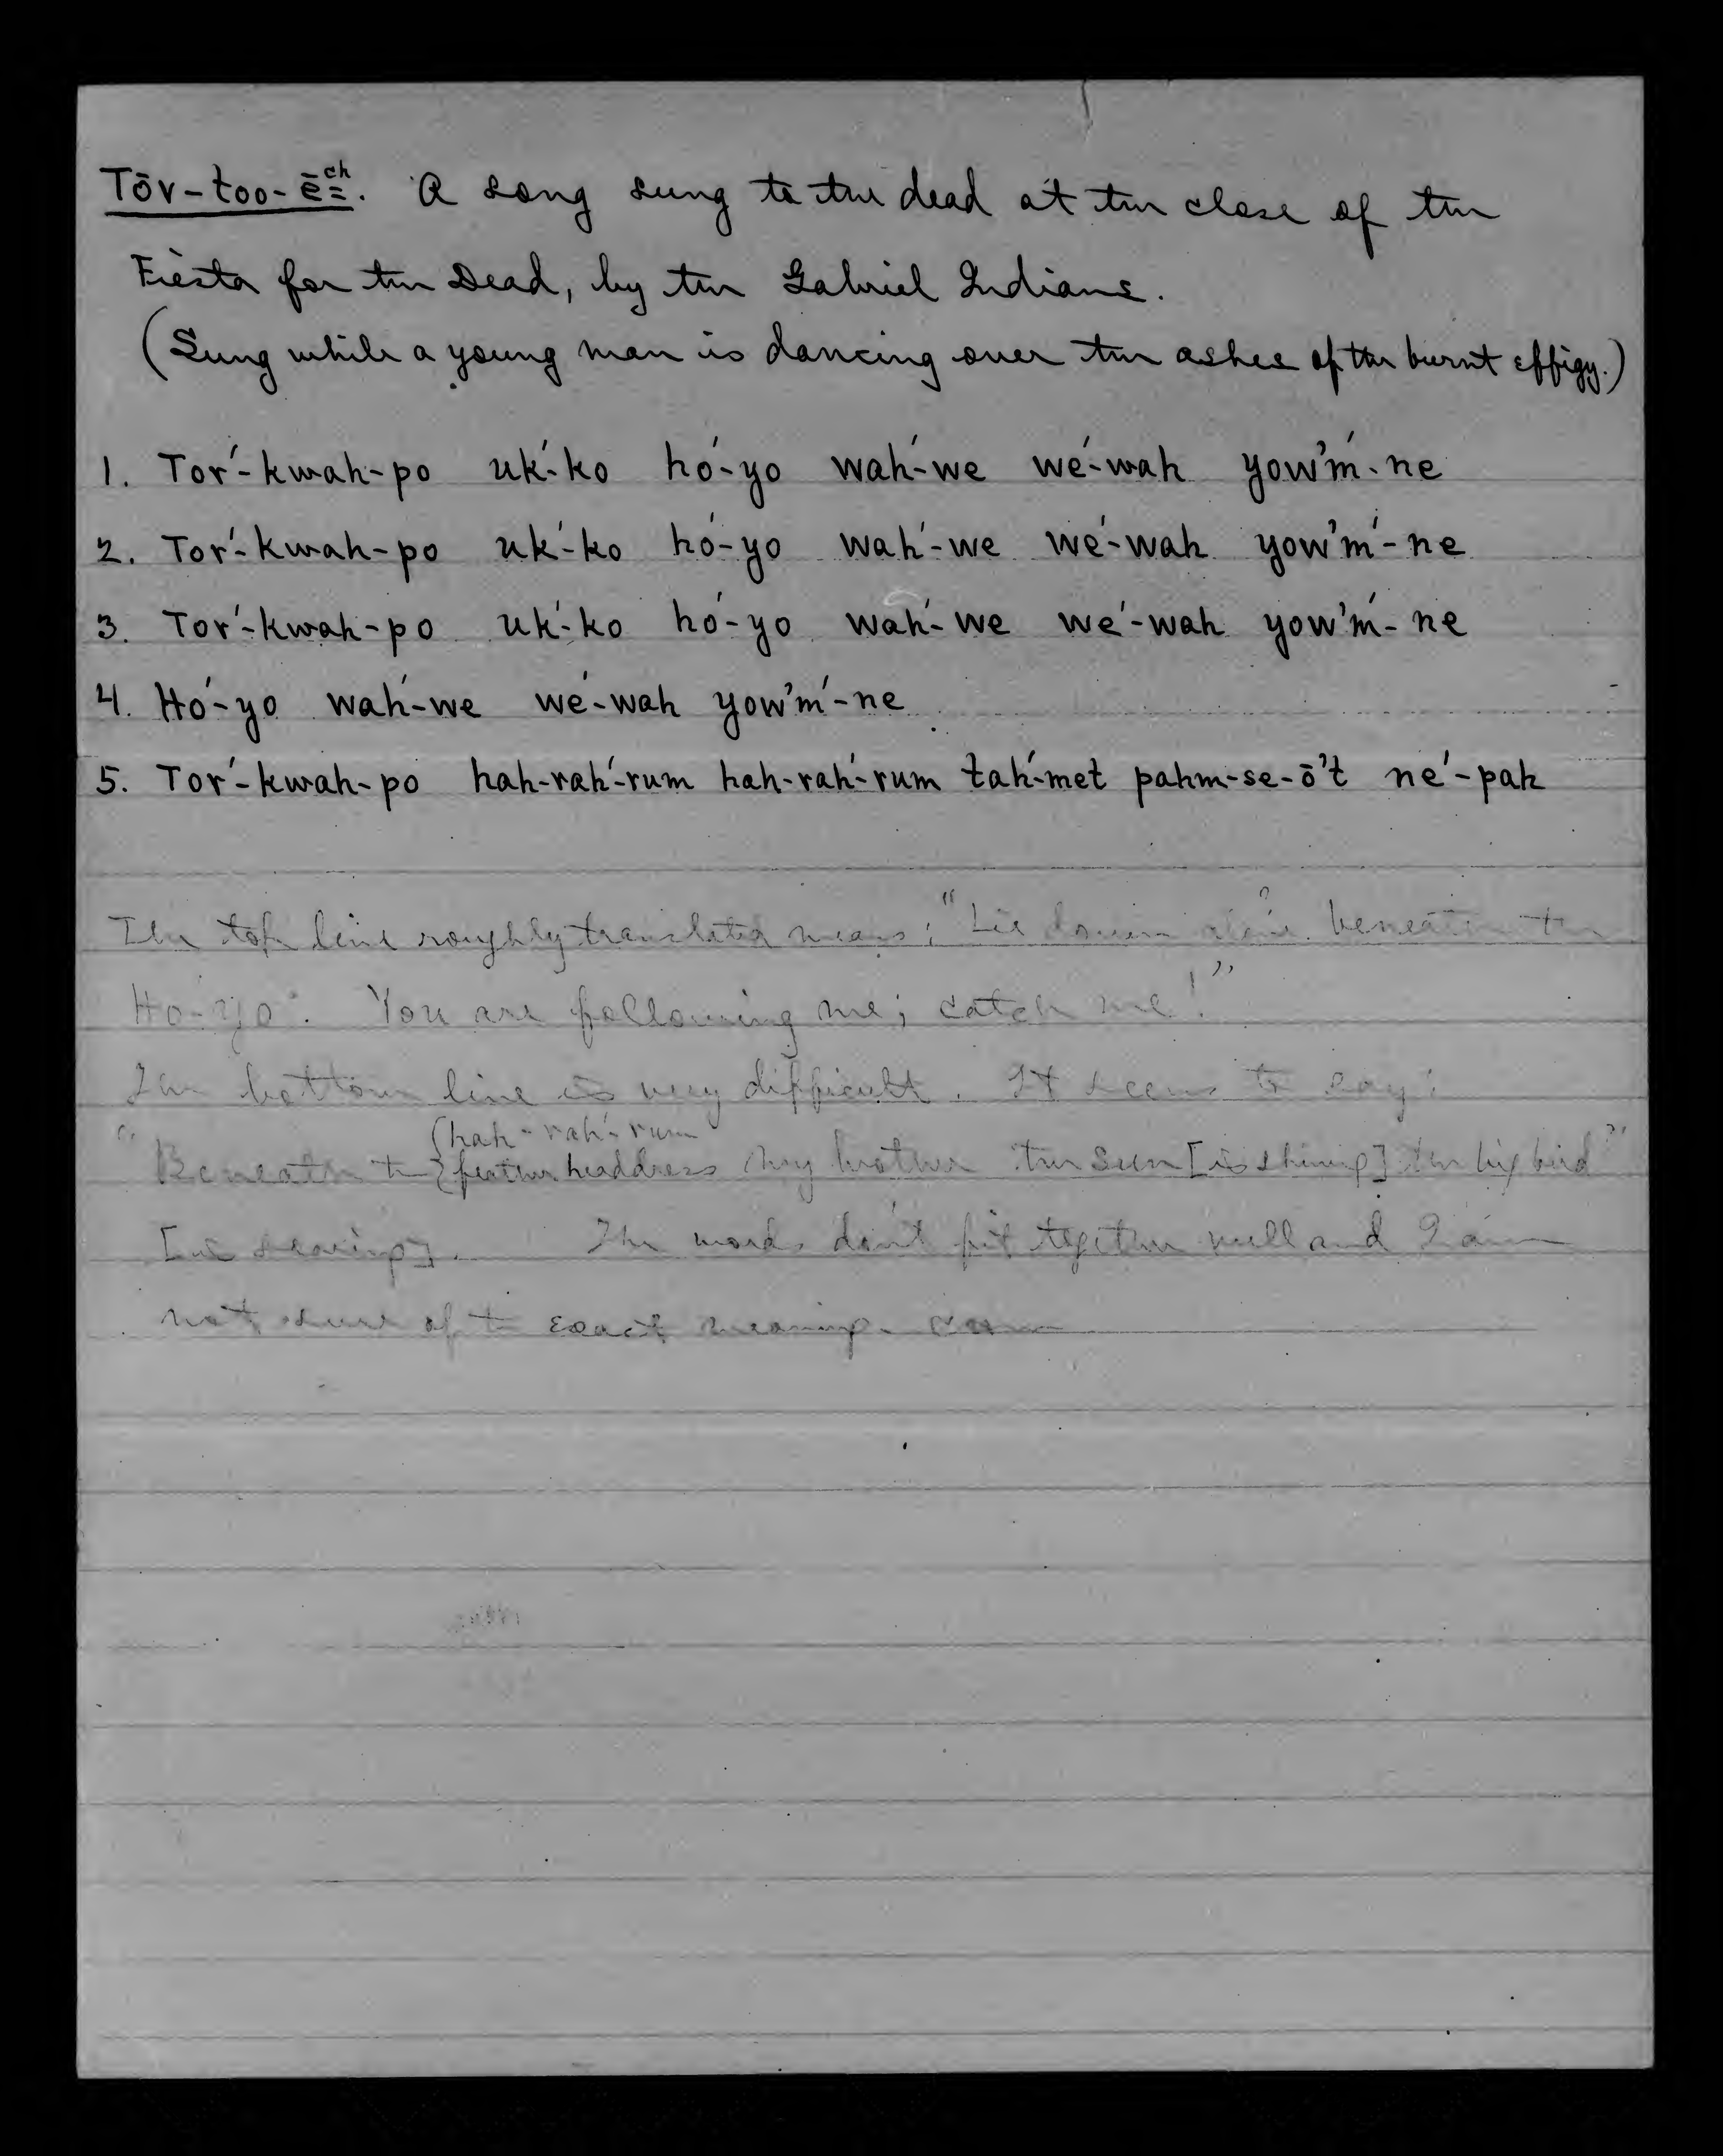 Tōv-too-ēch. A song sung to the dead at the close of the
Fiesta for the Dead, by the Gabriel Indians.
(Sung while a young man is dancing over the ashes of the burnt effigy.)
1. Tor´-kwah-po uk´-ko ho´-yo wah´-we we´-wah yow'm´-ne
2. Tor´-kwah-po uk´-ko ho´-yo wah´-we we´-wah yow'm´-ne
3. Tor´-kwah-po uk´-ko ho´-yo wah´-we we´-wah yow'm´-ne
4. Ho´-yo wah´-we we´-wah yow'm´-ne
5. Tor´-kwah-po hah-rah´-rum hah-rah´-rum tah´-met pahm-se-ō't ne´-pah
The top line roughly translated means: "Lie down beneath the
Ho-yo. You are following me; catch me!"
The bottom line is very difficult. It seems to say:
(hah-rah´-rum
"Beneath the feather headdress my brother the Sun [is shining] the big bird"
[is soaring]. The words don't fit together well and I am
not sure of the exact meaning.